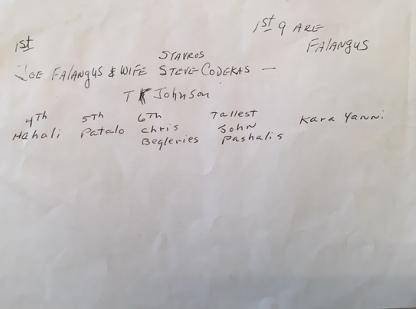 1st 9 ARE
FALANGUS
1st
JOE FALANGUS & WIFE STEVE CODEKAS —
STAVROS
T Johnson
4TH 5TH 6TH Tallest
Mahali Patalo Chris John Kara Yanni
Begleries Pashalis